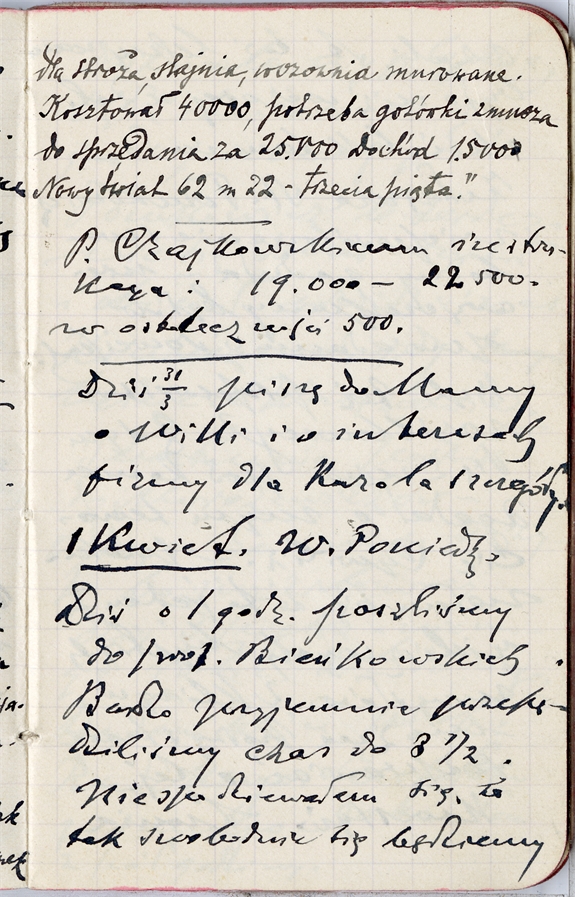 dla stróża, stajnia, wozownia murowane.
Kosztował 40000, potrzeba gotówki zmusza
do sprzedania za 25.000 Dochód 1500
Nowy Świat 62 m 22 - trzecia piąta."
P. Czajkowskiemu
19.000 — 22500.
w ostateczności 500.
Dziś 31/3 piszę do Mamy
o Willi i o interesach
firmy dla Karola szczegóły.
1 Kwiet. W. Poniedz.
Dziś o 1 godz. poszliśmy
do prof. Bieńkowskich.
Bardzo przyjemnie przepę-
dziliśmy czas do 3 1/2.
Niespodziewałem się, że
tak swobodnie się będziemy